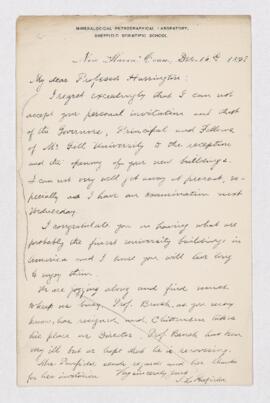 MINERALOGICAL-PETROGRAPHICAL LABORATORY,
SHEFFIELD SCIENTIFIC SCHOOL
New Haven Conn, Dec. 16th 1898
My dear Professor Harrington:
I regret exceedingly that I can not
accept your personal invitation and that
of the Governors, Principal and Fellows
of McGill University to the reception
and the opening of your new buildings.
I can not very well get away at present, es-
pecially as I have an examination next
Wednesday.
I congratulate you on having what are
probably the finest university buildings in
America and I trust you will live long
to enjoy them.
We are jogging along and find much
to keep us busy. Prof. Brush, as you may
know, has resigned and Chittenden takes
his place as Director. Prof. Brush has been
very ill but we hope that he is recovering.
Mrs. Penfield sends regards and her thanks
for her invitation. Very sincerely yours
S. L. Penfield